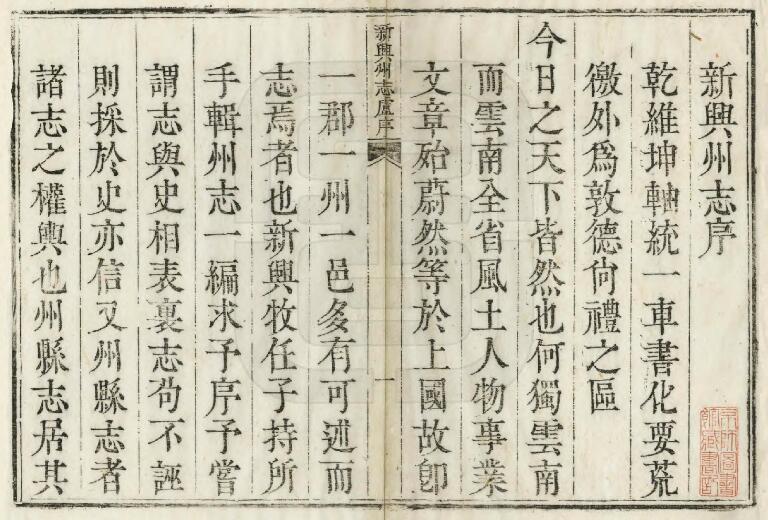 新興州志序
乾維坤軸統一車書化要荒
徼外爲敦德尙禮之區
今日之天下皆然也何獨雲南
而雲南全省風土人物事業
文章殆蔚然等於上國故卽
新興州志盧序
一
一郡一州一邑多有可述而
志焉者也新興牧任子持所
手輯州志一編求予序予嘗
謂志與史相表裏志茍不誣
則採於史亦信又州縣志者
諸志之權輿也州縣志居其
京師圖書
館藏書記